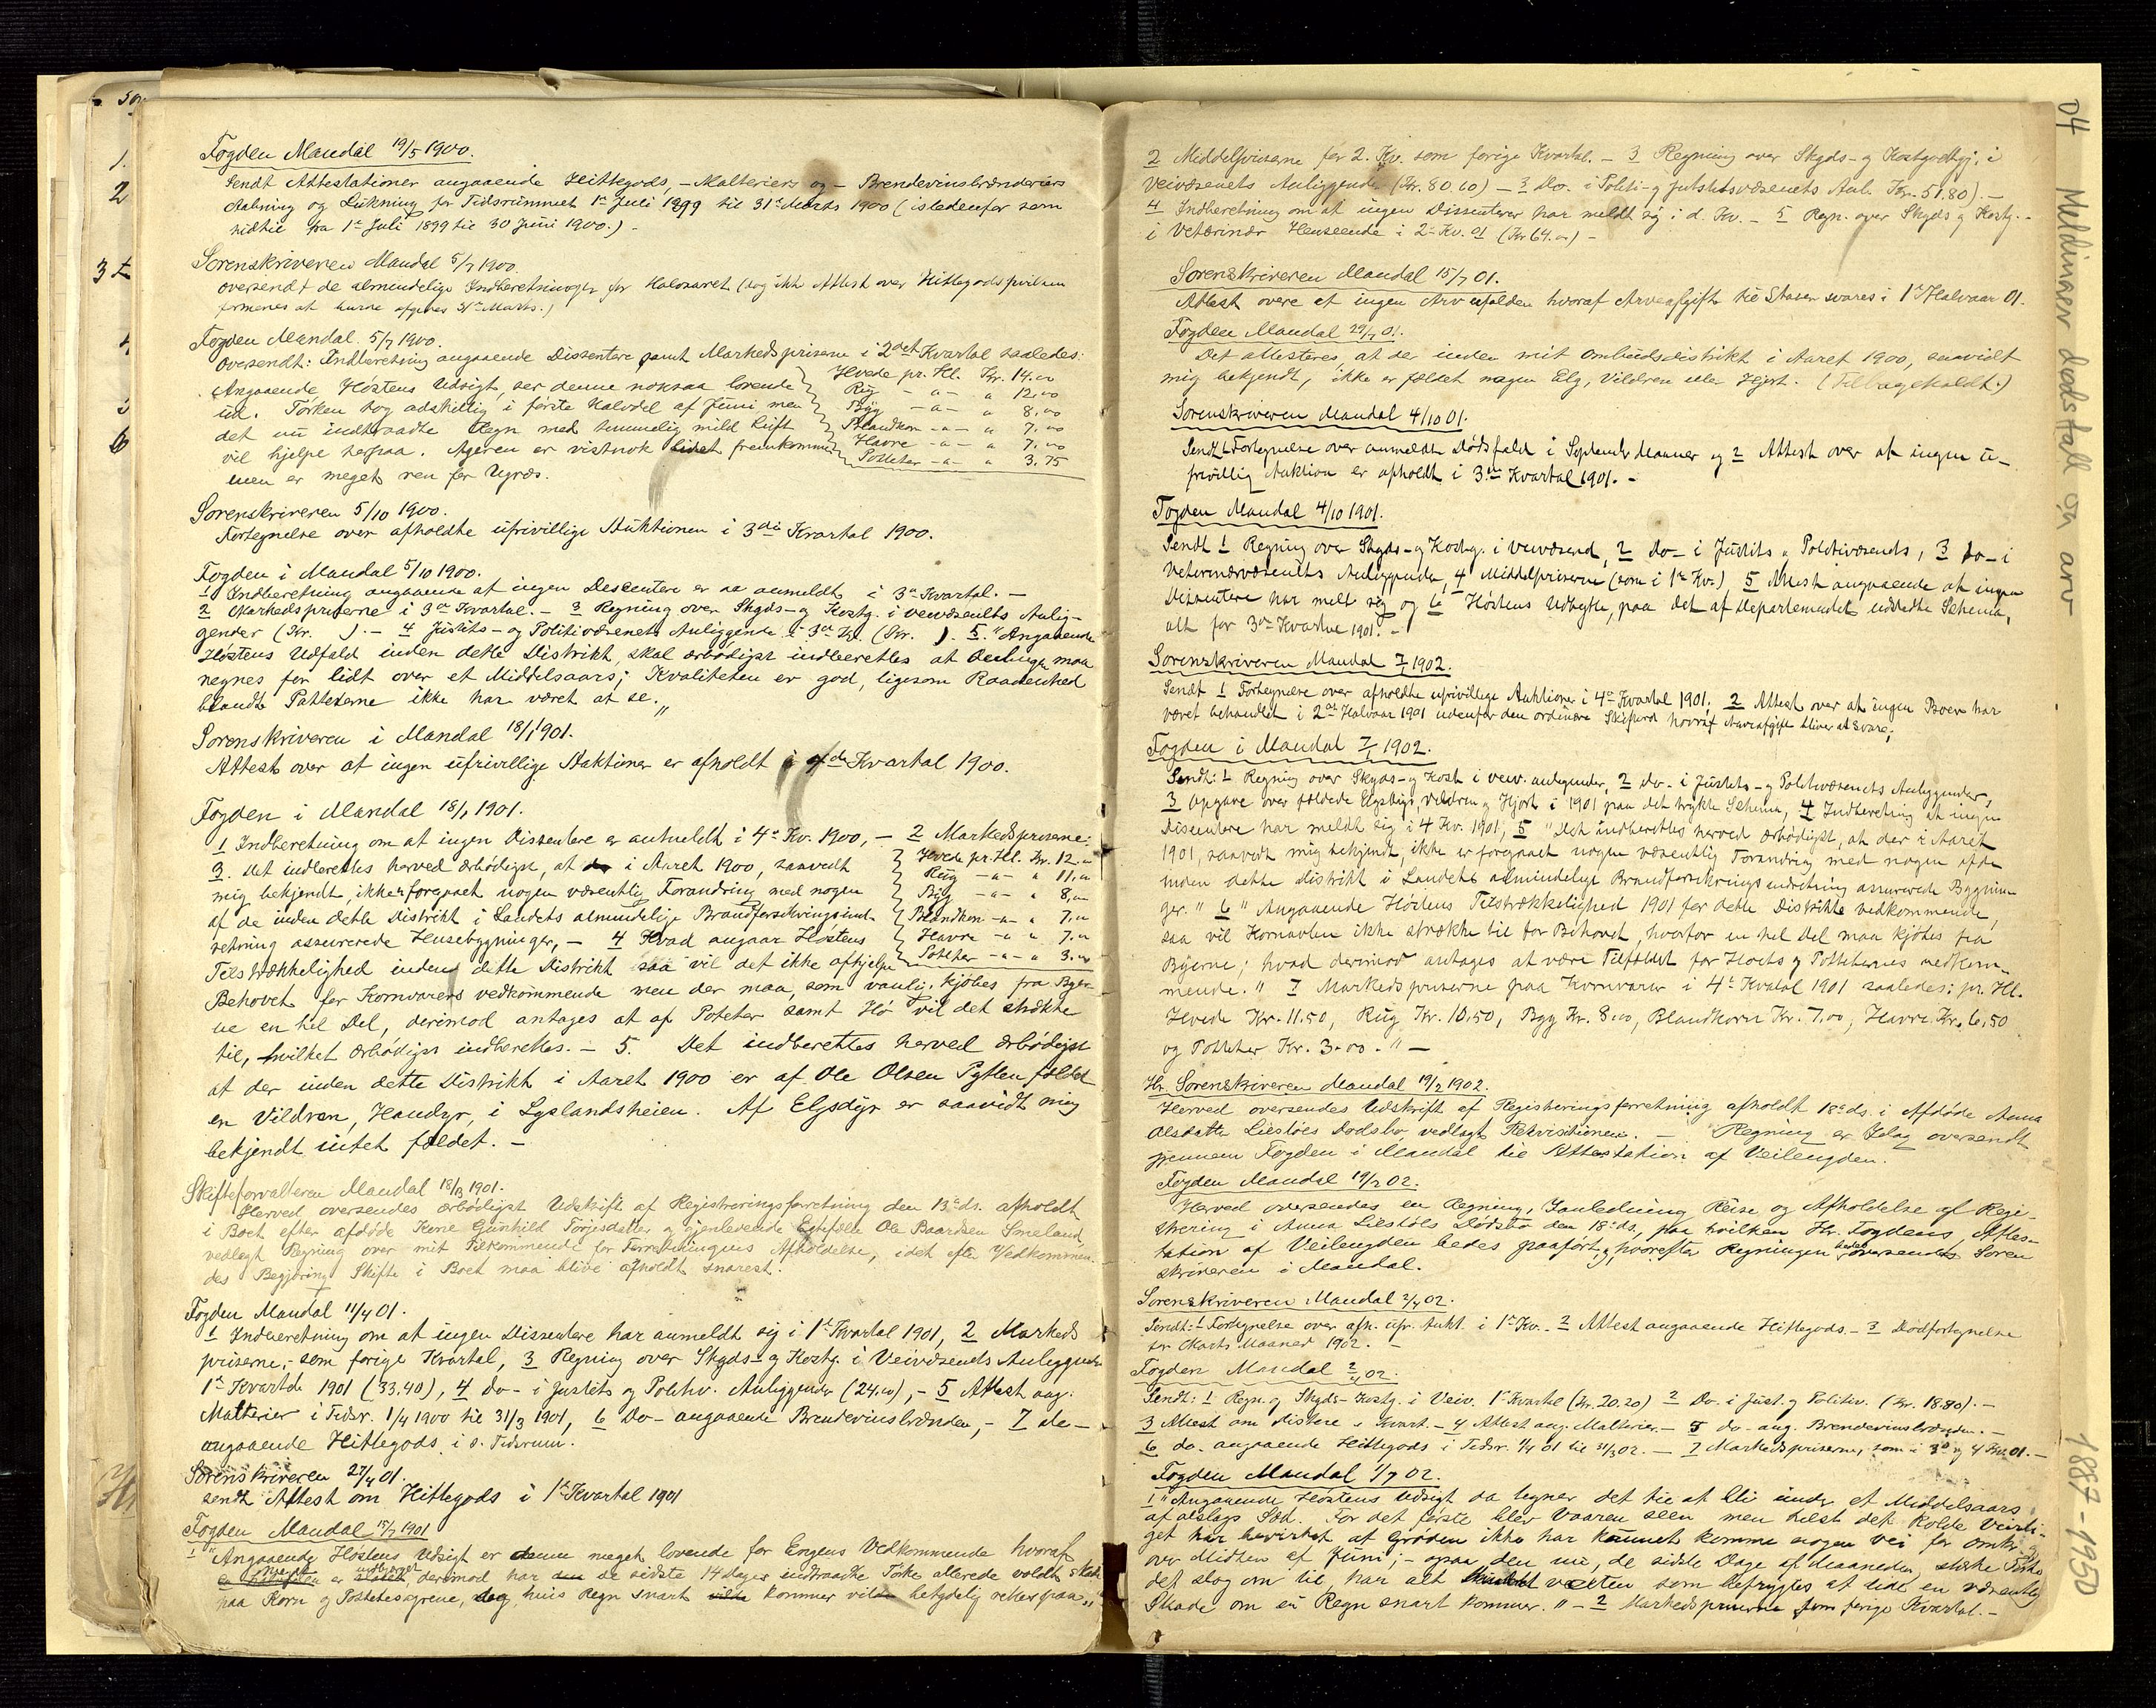 Fogden Mandal 19/5 1900.
Sendt Attestationer angaaende Hittegods, - Malteriers og - Brændevinsbrænderiers
Aabning og Lukning for Tidsrummet 1ste Juli 1899 til 31te Marts 1900 (istedenfor som
hidtil fra 1ste Juli 1899 til 30 Juni 1900.) -
Sorenskriveren Mandal 5/7 1900.
oversendt de almindelige Indberetninger for Halvaaret (dog ikke Attest over Hittegods
formenes at burde afgives 31te Marts.)
Fogden Mandal 5/7 1900.
Oversendt: Indberetning angaaende Dissentere samt Markedspriserne i 2det Kvartal saaledes:
Angaaende Høstens Udsigt, ser denne noksaa lovende
ud. Tørken tog adskillig i første Halvdel af Juni men
det nu indtraadte Regn med temmelig mild Luft
vil hjelpe herpaa. Ageren er vistnok lidet fremkommen
men er meget ren for Ugræs.
Hvede pr. Hl. Kr. 14.00
Rug - " - " 12,00
Byg - " - " 8,00
Blandkorn - " - " 7,00
Havre - " - " 7,00
Poteter - " - " 3.75
Sorenskriveren 5/10 1900.
Fortegnelse over afholdte ufrivillige Auktioner i 3die Kvartal 1900.
Fogden i Mandal 5/10 1900.
1 Indberetning angaaende at ingen Descentere er anmeldt i 3die Kvartal. -
2 Markedspriserne i 3die Kvartal. - 3 Regning over Skyds- og Kostg. i Veivæsenets Anlig-
gender (Kr. ). - 4 Justits- og Politivæsenets Anliggende i 3die Kv. (Kr. ). 5. "Angaaende
Høstens Udfald inden dette Distrikt, skal ærbødigst indberettes at Avlingen maa
regnes for lidt over et Middelsaars; Kvaliteten er god, ligesom Raadenhed
blandt Potteterne ikke har været at se."
Sorenskriveren i Mandal 18/1 1901.
Attest over at ingen ufrivillige Auktioner er afholdt i 4de Kvartal 1900.
Fogden i Mandal 18/1 1901.
1 Indberetning om at ingen Dissentere er anmeldt i 4de Kv. 1900, - 2 Markedspriserne:
3. Det indberettes herved ærbødigst, at i Aaret 1900, saavidt
mig bekjendt, ikke er foregaaet nogen væsentlig Forandring med nogen
af de inden dette Distrikt i Landets almindelige Brandforsikringsind-
retning assurerede Husebygninger, - 4 Hvad angaar Høstens
Tilstrækkelighed inden dette Distrikt saa vil det ikke afhjelpe
Hvede pr. Hl. Kr. 12.00
Rug - " - " 11,00
Byg - " - " 8,00
Blandkorn - " - " 7.00
Havre - " - " 7.00
Poteter - " - " 3.00
Behovet for Kornvarers vedkommende men der maa, som vanlig, kjøbes fra Byer-
ne en hel Del, derimod antages at af Poteter samt Hø vil det strække
til, hvilket ærbødigst indberettes. - 5. Det indberettes herved ærbødigst
at der inden dette Distrikt i Aaret 1900 er af Ole Olsen Pytten fældet
en Vildren, Handyr, i Lyslandsheien. Af Elgsdyr er saavidt mig
bekjendt intet fældet. -
Skifteforvalteren Mandal 18/3 1901.
Herved oversendes ærbødigst Udskrift af Registreringsforretning den 13de ds. afholdt
i Boet efter afdøde Kone Gunhild Torjusdatter og gjenlevende Egtefælle Ole Baardsen Smeland,
vedlagt Regning over mit Tilkommende for Forretningens Afholdelse, idet efter Vedkommen-
des Begjæring Skifte i Boet maa blive afholdt snarest.
Fogden Mandal 11/4 01.
1 Indberetning om at ingen Dissentere har anmeldt sig i 1ste Kvartal 1901, 2 Markeds
priserne, som forige Kvartal, 3 Regning over Skyds- og Kostg. i Veivæsenets Anliggender
1ste Kvartal 1901 (33.40), 4 do- i Justits og Politiv. Anliggender (24.00), - 5 Attest ang.
Malterier i Tidsr. 1/4 1900 til 31/3 1901, 6 Do- angaaende Brændevinsbrænderi, - 7 do-
angaaende Hittegods i s. Tidsrum.
Sorenskriveren 27/4 01.
sendt Attest om Hittegods i 1ste Kvartal 1901
Fogden Mandal 15/7 1901
1 "Angaaende Høstens Udsigt er denne meget lovende for Engens Vedkommende hvoraf
er derimod har de sidste 14 dages indtraadte Tørke allerede voldt Skade
paa Korn og Pottetesagrene, dog, hvis Regn snart kommer vil betydelig rettes paa"
2 Middelpriserne for 2. Kv. som forige Kvartal. - 3 Regning over Skyds- og Kostgodtgj. i
Veivæsenets Anliggender (Kr. 80.60) - 3 Do. i Politi- og Justitsvæsenets Anl. Kr. 51.80). -
4 Indberetning om at ingen Dissenterer har meldt sig i d. Kv. - 5 Regn. over Skyds og Kostg. -
i Veterinær Henseende i 2det Kv. 01 (Kr 64.00) -
Sorenskriveren Mandal 15/7 01.
Attest over at ingen Arv er falden hvoraf Arveafgift til Staten svares i 1ste Halvaar 01.
Fogden Mandal 29/7 01.
Det attesteres, at der inden mit Ombudsdistrikt i Aaret 1900, saavidt
mig bekjendt, ikke er fældet nogen Elg, Vildren eller Hjort. (Tilbageholdt.)
Sorenskriveren Mandal 4/10 01.
Sendt 1 Fortegnelse over anmeldte Dødsfald i September Maaned og 2 Attest over at ingen u-
frivillig Auktion er afholdt i 3die Kvartal 1901. -
Fogden Mandal 4/10 1901.
Sendt 1 Regning over Skyds- og Kostg. i Veivæsend, 2 do- i Justits og Politivæsends, 3 do- i
Veterinærvæsenets Anliggender, 4 Middelpriserne (som i 1ste Kv.) 5 Attest angaaende at ingen
Dissentere har meldt sig og 6 Høstens Udbytte, paa det af Departementet udstedte Schema,
alt for 3die Kvartal 1901. -
Sorenskriveren Mandal 7/1 1902.
Sendt 1 Fortegnelse over afholdte ufrivillige Auktioner i 4de Kvartal 1901, 2 Attest over at ingen Boer har
været behandlet i 2det Halvaar 1901 udenfor den ordinære Skifteret hvoraf Arveafgift bliver at svare;
Fogden i Mandal 7/1 1902.
Sendt: 1 Regning over Skyds- og Kost i veiv. anliggender, 2 do- i Justits- og Politivæsenets Anliggender,
3 Opgave over fældede Elgsdyr, vildren og Hjort i 1901 paa det trykte Schema, 4 Indberetning at ingen
Dissentere har meldt sig i 4 Kv. 1901, 5 "Det indberettes herved ærbødigst, at der i Aaret
1901, saavidt mig bekjendt, ikke er foregaaet nogen væsentlig Forandring med nogen af de
inden dette Distrikt i Landets almindelige Brandforsikringsindretning assurerede Bygnin-
ger." 6 "Angaaende Høstens Tilstrækkelighed 1901 for dette Distrikts vedkommende,
saa vil Kornavlen ikke strække til for Behovet, hvorfor en hel Del maa kjøbes fra
Byerne; hvad derimod antages at være Tilfældet for Høets og Potteternes vedkom-
mende." 7 Markedspriserne paa Kornvarer i 4de Kvartal 1901 saaledes: pr. Hl.
Hvede Kr. 11.50, Rug Kr. 10.50, Byg Kr. 8.00, Blandkorn Kr. 7.00, Havre Kr. 6,50
og Potteter Kr. 3.00." -
Hr. Sorenskriveren Mandal 19/2 1902.
Herved oversendes Udskrift af Registreringsforretning afholdt 18de ds. i Afdøde Anna
Olsdatter Liesløes Dødsbo, vedlagt Rekvisitionen. - Regning er Idag oversendt
gjennem Fogden i Mandal til Attestation af Veilengden.
Fogden Mandal 19/2 02.
Herved oversendes en Regning, Ianledning Reise og Afholdelse af Regi-
strering i Anna Liesløes Dødsbo den 18de ds, paa hvilken Hr. Fogdens Attes-
tation af Veilengden bedes paaført, og hvorefter Regningen bedes oversendes Soren
skriveren i Mandal.
Sorenskriveren Mandal 2/4 02.
Sendt: 1 Fortegnelse over afh. ufr. Aukt. i 1ste Kv. - 2 Attest angaaende Hittegods. - 3 Dødfortegnelse
for Marts Maaned 1902. -
Fogden Mandal 2/4 02.
Sendt: 1 Regn. og Skyds- Kostg. i Veiv. 1ste Kvartal (Kr. 20.20) 2 Do. i Just. og Politiv. (Kr. 18.80). -
3 Attest om Distere i Kvart. - 4 Attest ang. Malterier. - 5 do- ang. Brændevinsbrænderi. -
6 do- angaaende Hittegods i Tidsr. 1/4 01 til 31/3 02. - 7 Markedspriserne, som i 3die og 4 Kv. 01. -
Fogden Mandal 1/7 02.
1 "Angaaende Høstens Udsigt da tegner det til at bli under et Middelsaars
af alslags Sæd. For det første blev Vaaren seen men helst det kolde Veirli-
get har bevirket at Grøden ikke har kunnet komme nogen vei før omkr. og
over Midten af Juni; - ogsaa den nu, de sidste Dage af Maaneden, stærke Tørke
det slog om til, har alt voxten, som befrygtes at lide en væsentlig
Skade om ei Regn snart kommer." - 2 Markedspriserne som forige Kvartal. -
04 Meldinger dødsfall og arv
1887 - 1950